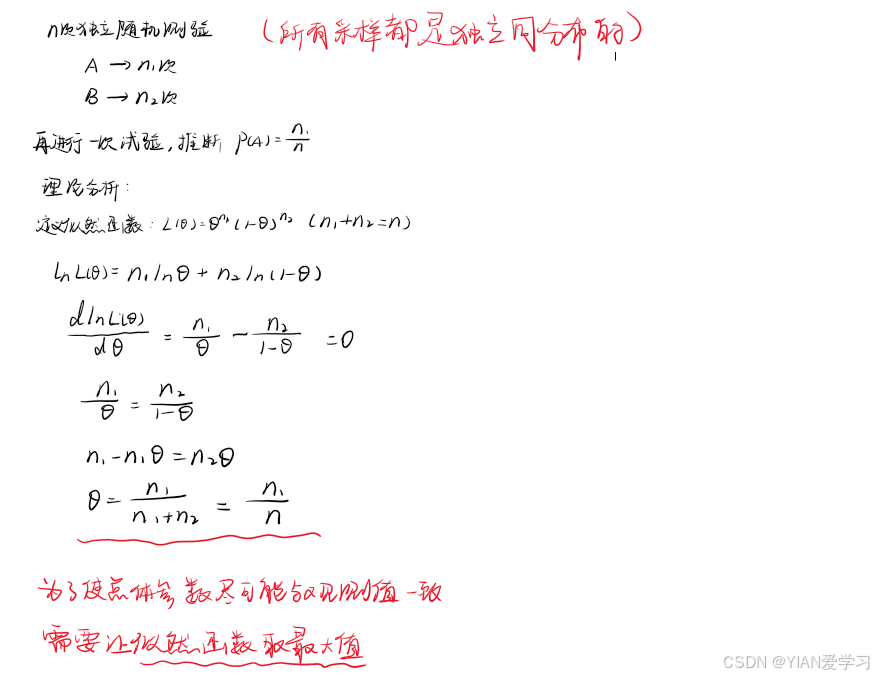 n次独立随机测验 （所有采样都是独立同分布的）
A → n₁次
B → n₂次
再进行一次试验，推断 P(A) = n₁/n
理论分析：
定义似然函数：L(θ)=θ^n₁ (1-θ)^n₂ (n₁+n₂=n)
ln L(θ) = n₁ ln θ + n₂ ln(1-θ)
d ln L(θ)/dθ = n₁/θ - n₂/(1-θ) = 0
n₁/θ = n₂/(1-θ)
n₁ - n₁θ = n₂θ
θ = n₁/(n₁+n₂) = n₁/n
为了使总体参数尽可能与观测值一致
需要让似然函数取最大值
CSDN @YIAN爱学习